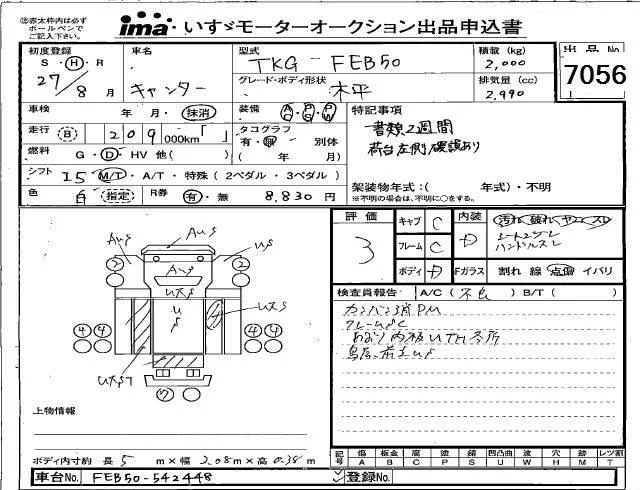 ㊟赤太枠内は必ず
ボールペンで
ご記入下さい。
ima いすゞモーターオークション出品申込書
初度登録
S・H・R
27/8 月
車名
キャンター
型式
TKG-FEB50
グレード・ボディ形状
木平
積載 (kg)
2,000
排気量 (cc)
2,990
出品No
7056
車検 年・月・抹消
装備 AC PS PW
特記事項
書類2週間
荷台左側破損あり
走行 B 209 000km「 」
タコグラフ
有・無 別体
( 年 月)
燃料 G・D・HV 他( )
シフト I5 M/T・A/T・特殊 (2ペダル・3ペダル)
架装物年式:( 年式)・不明
※不明の場合は、不明に○をする。
色 白 指定
R券 有・無 8,830 円
評価
3
キャブ C
フレーム C
ボディ D
内装 D
汚れ 破れ ヤニ スレ
シートスレ
ハンドルスレ
Fガラス 割れ 線 点傷 イバリ
検査員報告 A/C( 不良 ) B/T( )
カンバン消PM
フレームSC
あおり内板UTH多所
鳥居前立US
AUS
AUS
US
2
AUS
2
UXS
UXS
US
4 4
4 4
UXST
7
上物情報
ボディ内寸約 長 5 m×幅 2.08m×高 0.38m
記号
傷 板金 腐 塗 錆 凹凸曲 波 穴 跡 レツ割
A B C P S U W H M T
車台No. FEB50-542448
登録No.